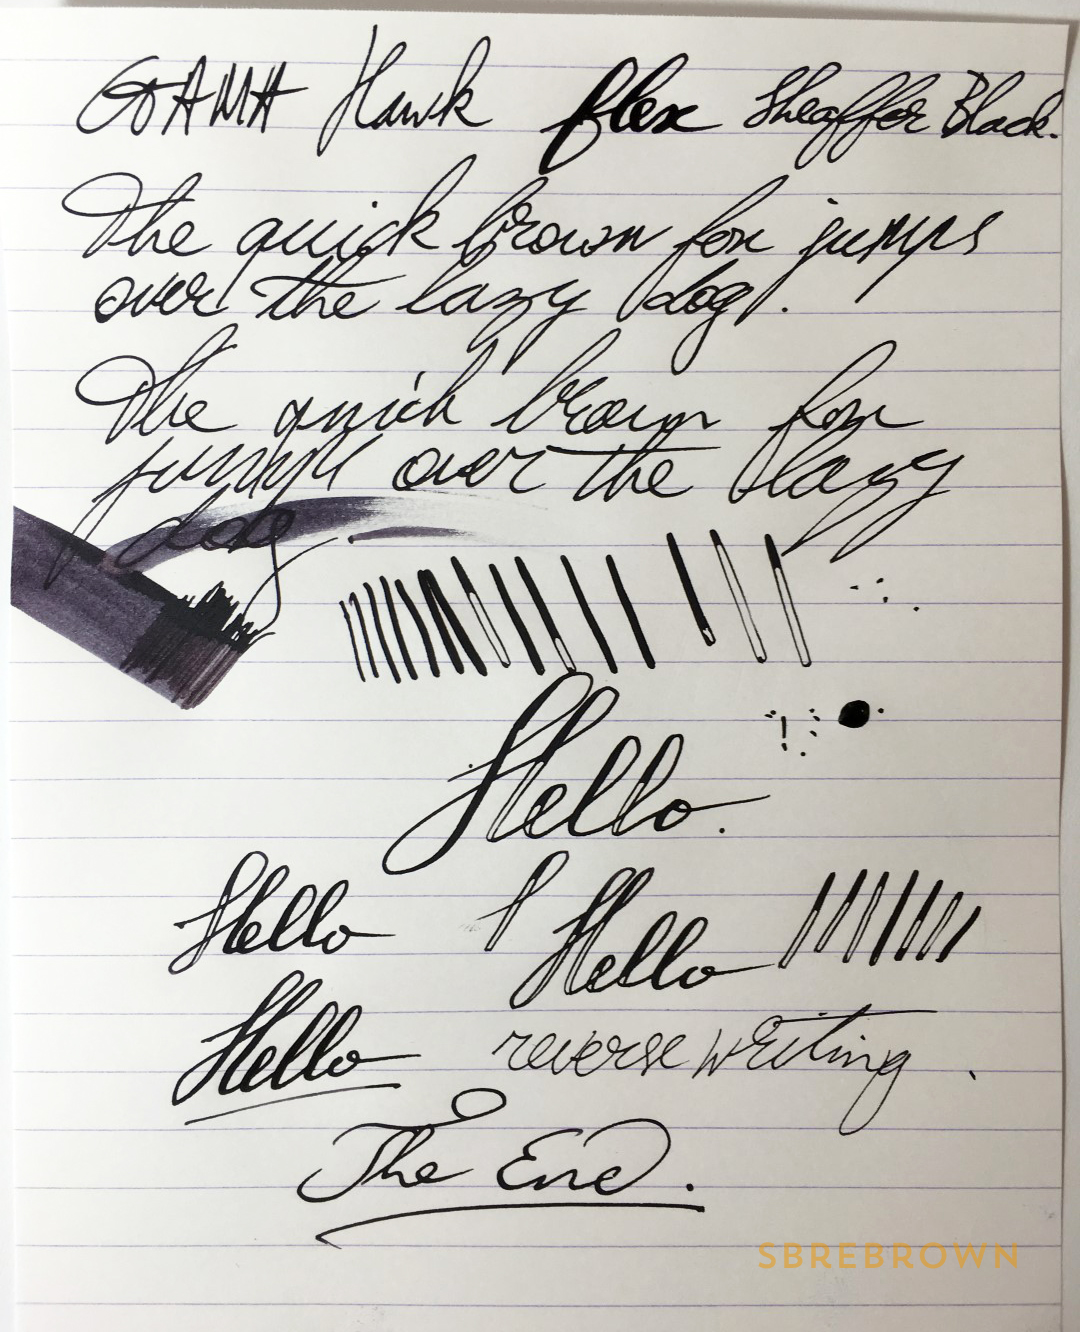 GAMA Hawk flex Sheaffer Black.
The quick brown fox jumps
over the lazy dog.
The quick brown fox
jumps over the lazy
dog.
Hello.
Hello Hello
Hello reverse writing.
The End.
SBREBROWN